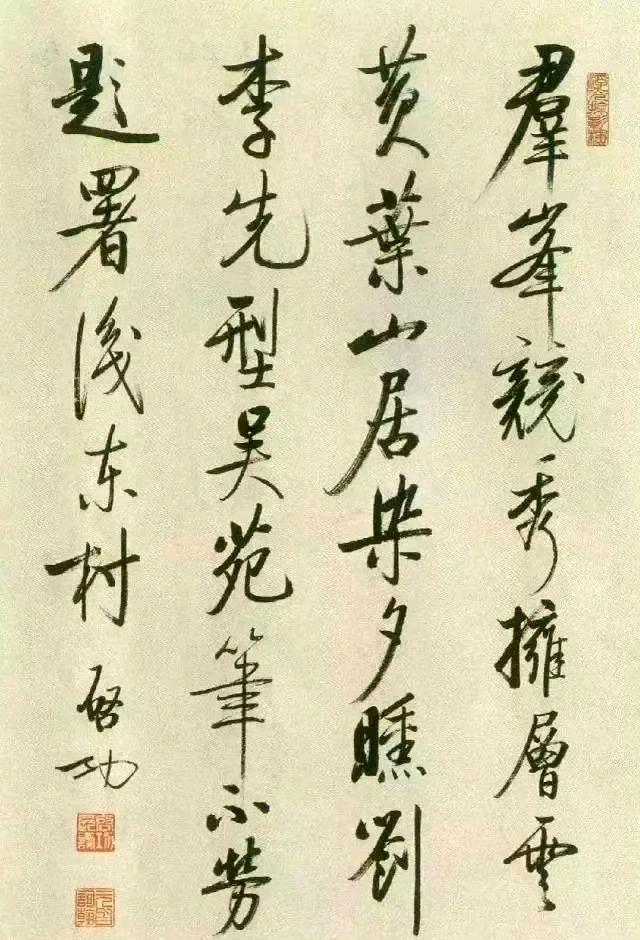 羣峯競秀擁層雲
黄葉山居染夕曛劉
李先型吴苑筆不勞
題署後東村
啓功